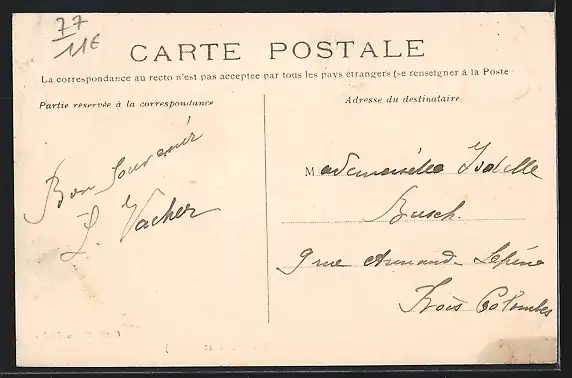 77
11€
CARTE POSTALE
La correspondance au recto n'est pas acceptée par tous les pays étrangers (se renseigner à la Poste
Partie réservée à la correspondance
Adresse du destinataire
Bon Souvenir
L. Vacher
Mademoiselle Isabelle
Busch.
9 rue Armand-Lépine
Bois Colombes